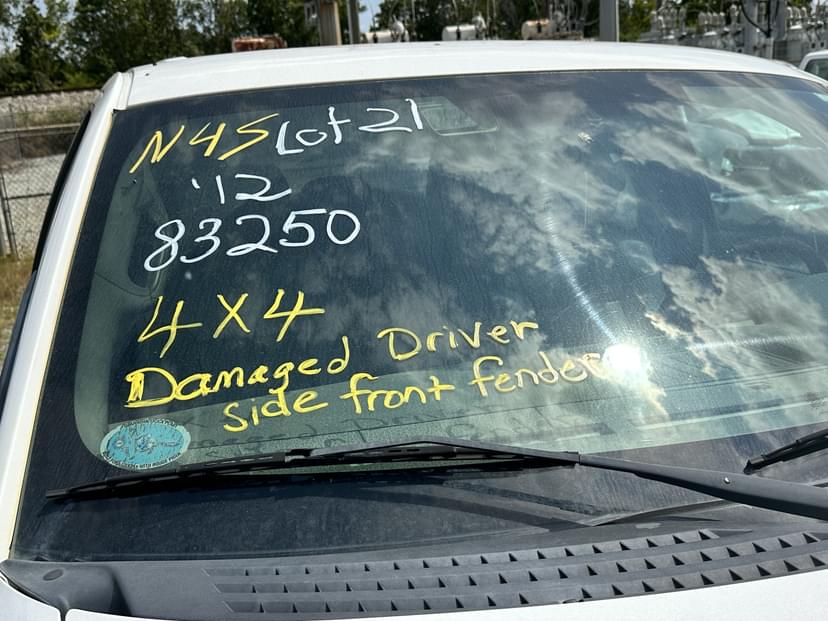 N45 Lot 21
'12
83250
4X4
Damaged Driver
side front fender